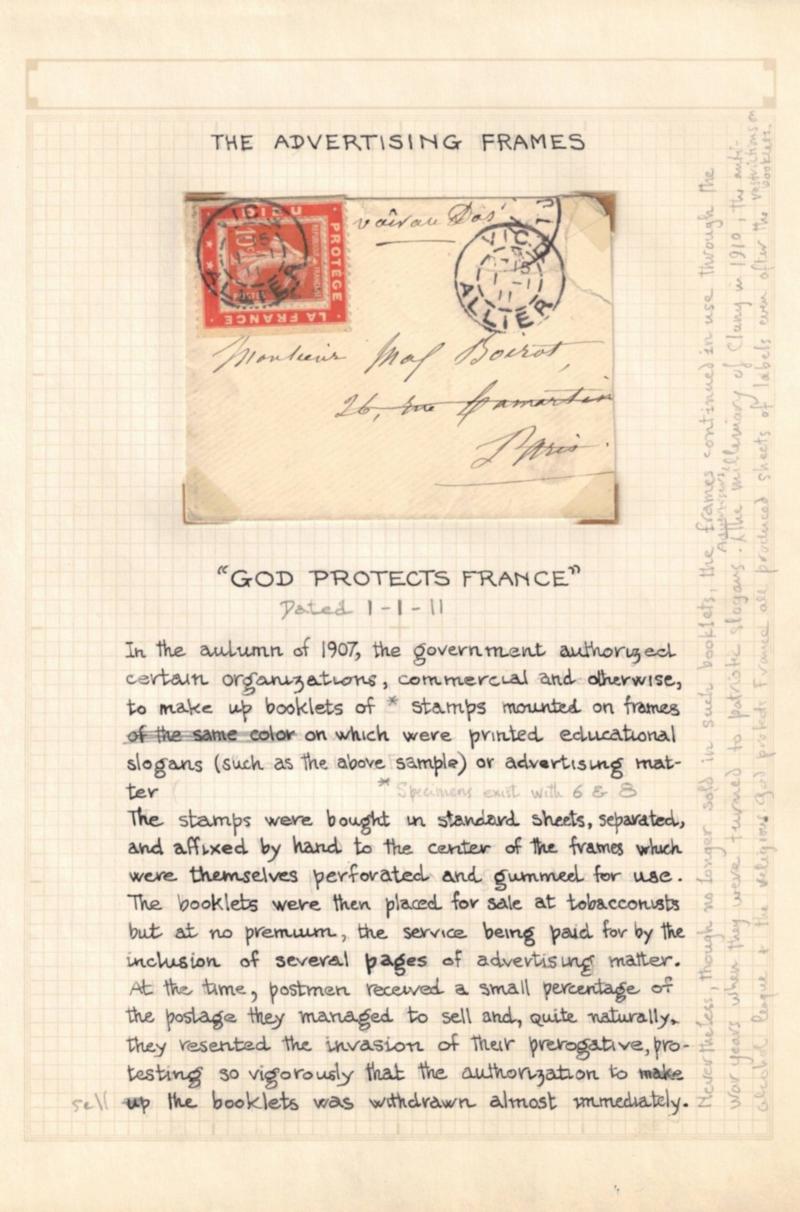 THE ADVERTISING FRAMES
DIEU
PROTÈGE
LA FRANCE
10c
ALLIER
voir au Dos
VIC
ALLIER
Monsieur
26, rue
Paris.
"GOD PROTECTS FRANCE"
Dated 1-1-11
In the autumn of 1907, the government authorized
certain organizations, commercial and otherwise,
to make up booklets of * stamps mounted on frames
of the same color on which were printed educational
slogans (such as the above sample) or advertising mat-
ter
* Specimens exist with 6 & 8
The stamps were bought in standard sheets, separated,
and affixed by hand to the center of the frames which
were themselves perforated and gummed for use.
The booklets were then placed for sale at tobacconists
but at no premium, the service being paid for by the
inclusion of several pages of advertising matter.
At the time, postmen received a small percentage of
the postage they managed to sell and, quite naturally,
they resented the invasion of their prerogative, pro-
testing so vigorously that the authorization to make
sell up the booklets was withdrawn almost immediately.
Nevertheless, though no longer sold in such booklets, the frames continued in use through the
War years when they were turned to patriotic slogans. Advertisers, the millenary of Cluny in 1910, the anti-
alcohol league & the religious God protects France all produced sheets of labels even after the restrictions on
booklets.